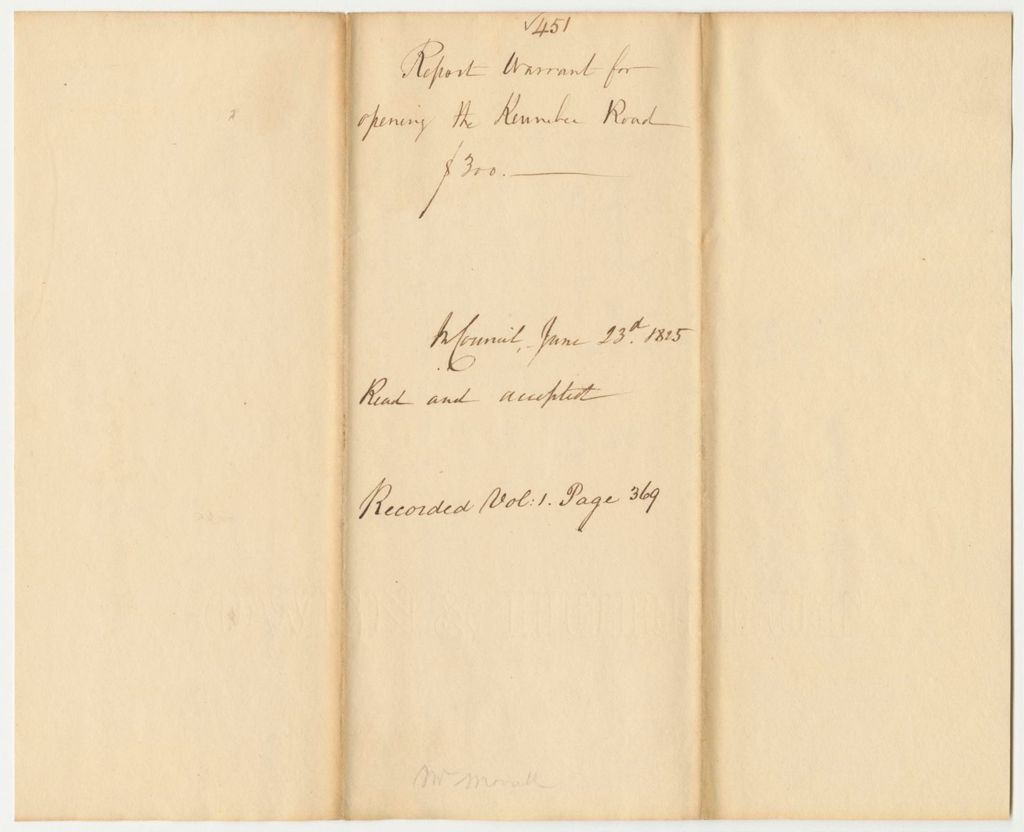 √451
Report Warrant for
opening the Kennebec Road
$300.
In Council, June 23d. 1825
Read and accepted
Recorded Vol: 1. Page 369
Mr